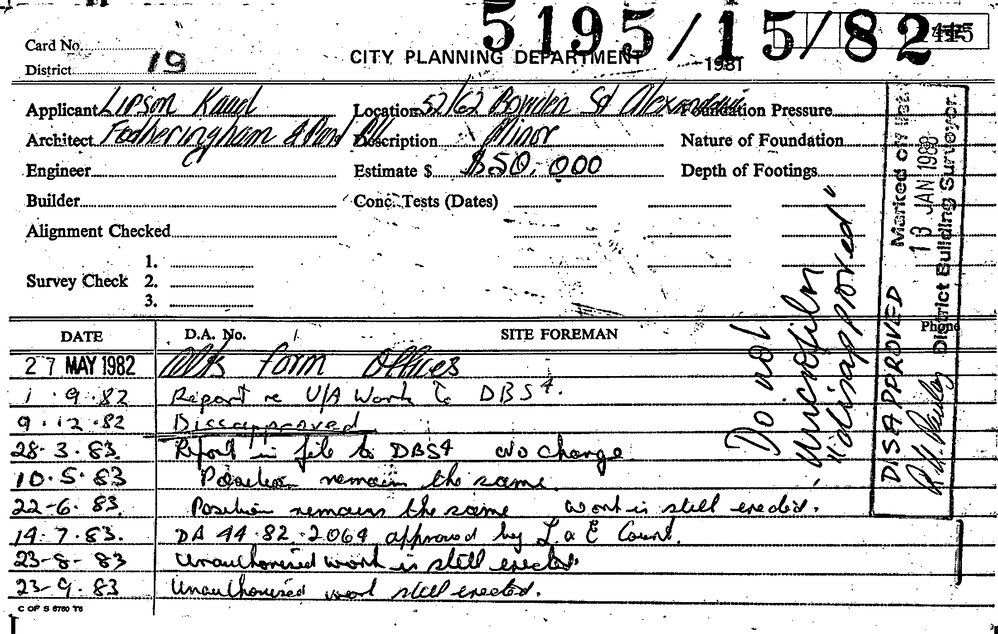 5195/15/82
Card No.
District 19
CITY PLANNING DEPARTMENT
1981
Applicant Lipson Kaud
Location 52/62 Bowden St Alexandria
Foundation Pressure
Architect Fotheringham &
Description Minor
Nature of Foundation
Engineer
Estimate $ $50,000
Depth of Footings
Builder
Conc. Tests (Dates)
Alignment Checked
Survey Check
1.
2.
3.
DISAPPROVED
Marked on
13 JAN 1983
District Building Surveyor.
Do not
microfilm
"disapproved"
DATE
D.A. No.
SITE FOREMAN
Phone
27 MAY 1982 Alts form Offices
1.9.82 Report re U/A Work to DBS4.
9.12.82 Dissapproved
28.3.83. Report in file to DBS4 No Change
10.5.83 Position remain the same.
22-6.83. Position remains the same work is still erected.
14.7.83. DA 44.82.2064 approved by L & E Court.
23-8-83 Unauthorised work is still erected.
23-9.83 Unauthorised work still erected.
C OF S 6760 T6